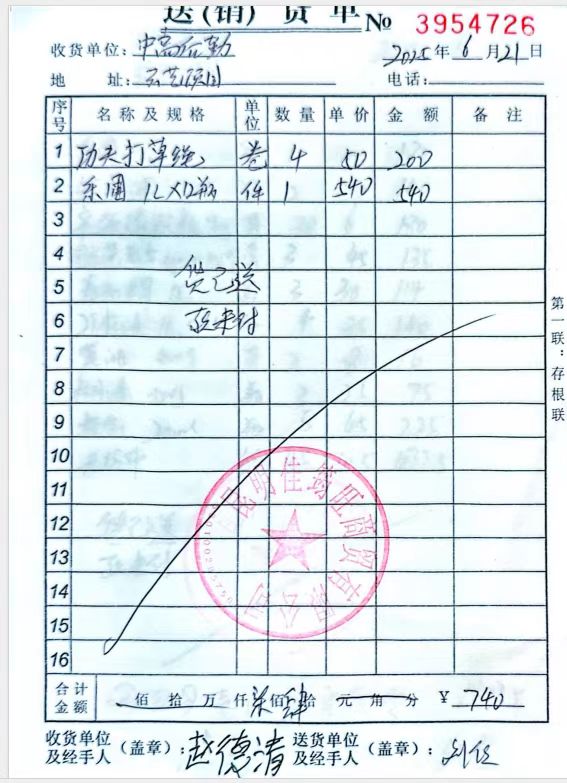 送(销)货单 № 3954726
收货单位: 2025年6月21日
地 址: 电话:
序号 名称及规格 单位 数量 单价 金额 备注
1 功夫打草绳 卷 4 50 200
2 乐果 1LX12瓶 件 1 540 540
3
4
货已送
5
款未付
6
7
8
9
10
11
12
13
14
15
16
昆明佳 旺商贸有限公司
合计金额 佰拾万仟柒佰肆拾元角分 ¥ 740
收货单位及经手人(盖章): 赵德清 送货单位及经手人(盖章):
第一联:存根联